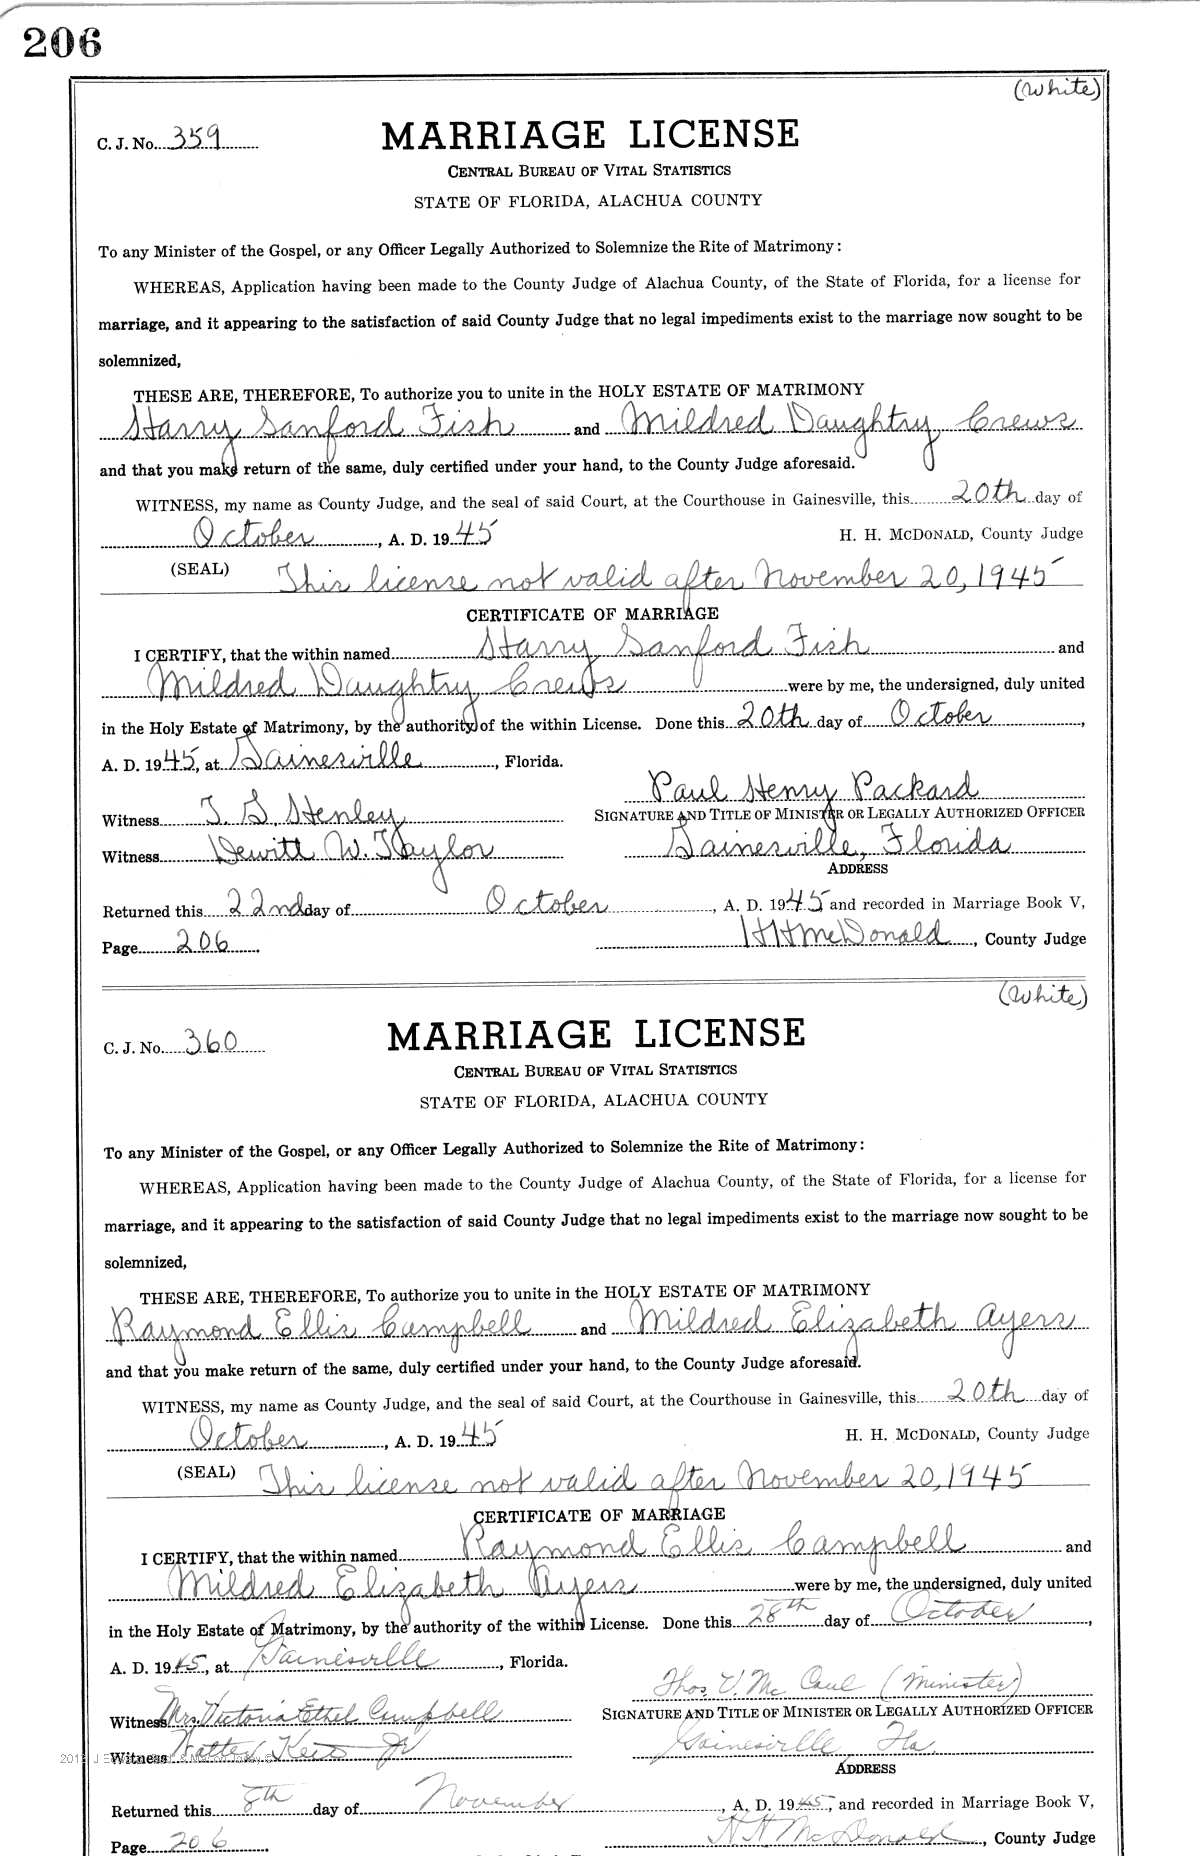 206
(White)
C. J. No. 359
MARRIAGE LICENSE
CENTRAL BUREAU OF VITAL STATISTICS
STATE OF FLORIDA, ALACHUA COUNTY
To any Minister of the Gospel, or any Officer Legally Authorized to Solemnize the Rite of Matrimony:
WHEREAS, Application having been made to the County Judge of Alachua County, of the State of Florida, for a license for
marriage, and it appearing to the satisfaction of said County Judge that no legal impediments exist to the marriage now sought to be
solemnized,
THESE ARE, THEREFORE, To authorize you to unite in the HOLY ESTATE OF MATRIMONY
Harry Sanford Fish and Mildred Daughtry Crews
and that you make return of the same, duly certified under your hand, to the County Judge aforesaid.
WITNESS, my name as County Judge, and the seal of said Court, at the Courthouse in Gainesville, this 20th day of
October, A. D. 1945 H. H. McDONALD, County Judge
(SEAL) This license not valid after November 20, 1945
CERTIFICATE OF MARRIAGE
I CERTIFY, that the within named Harry Sanford Fish and
Mildred Daughtry Crews were by me, the undersigned, duly united
in the Holy Estate of Matrimony, by the authority of the within License. Done this 20th day of October,
A. D. 1945, at Gainesville, Florida.
Paul Henry Packard
Witness T. S. Henley SIGNATURE AND TITLE OF MINISTER OR LEGALLY AUTHORIZED OFFICER
Witness Dewitt W. Taylor Gainesville, Florida
ADDRESS
Returned this 22nd day of October, A. D. 1945 and recorded in Marriage Book V,
Page 206 H H McDonald, County Judge
(White)
C. J. No. 360
MARRIAGE LICENSE
CENTRAL BUREAU OF VITAL STATISTICS
STATE OF FLORIDA, ALACHUA COUNTY
To any Minister of the Gospel, or any Officer Legally Authorized to Solemnize the Rite of Matrimony:
WHEREAS, Application having been made to the County Judge of Alachua County, of the State of Florida, for a license for
marriage, and it appearing to the satisfaction of said County Judge that no legal impediments exist to the marriage now sought to be
solemnized,
THESE ARE, THEREFORE, To authorize you to unite in the HOLY ESTATE OF MATRIMONY
Raymond Ellis Campbell and Mildred Elizabeth Ayers
and that you make return of the same, duly certified under your hand, to the County Judge aforesaid.
WITNESS, my name as County Judge, and the seal of said Court, at the Courthouse in Gainesville, this 20th day of
October, A. D. 1945 H. H. McDONALD, County Judge
(SEAL) This license not valid after November 20, 1945
CERTIFICATE OF MARRIAGE
I CERTIFY, that the within named Raymond Ellis Campbell and
Mildred Elizabeth Ayers were by me, the undersigned, duly united
in the Holy Estate of Matrimony, by the authority of the within License. Done this 28th day of October,
A. D. 1945, at Gainesville, Florida.
Thos. V. McCaul (Minister)
Witness Mrs. Victoria Ethel Campbell SIGNATURE AND TITLE OF MINISTER OR LEGALLY AUTHORIZED OFFICER
Witness Walter Keit Jr Gainesville Fla.
ADDRESS
Returned this 8th day of November, A. D. 1945, and recorded in Marriage Book V,
Page 206 H H McDonald, County Judge